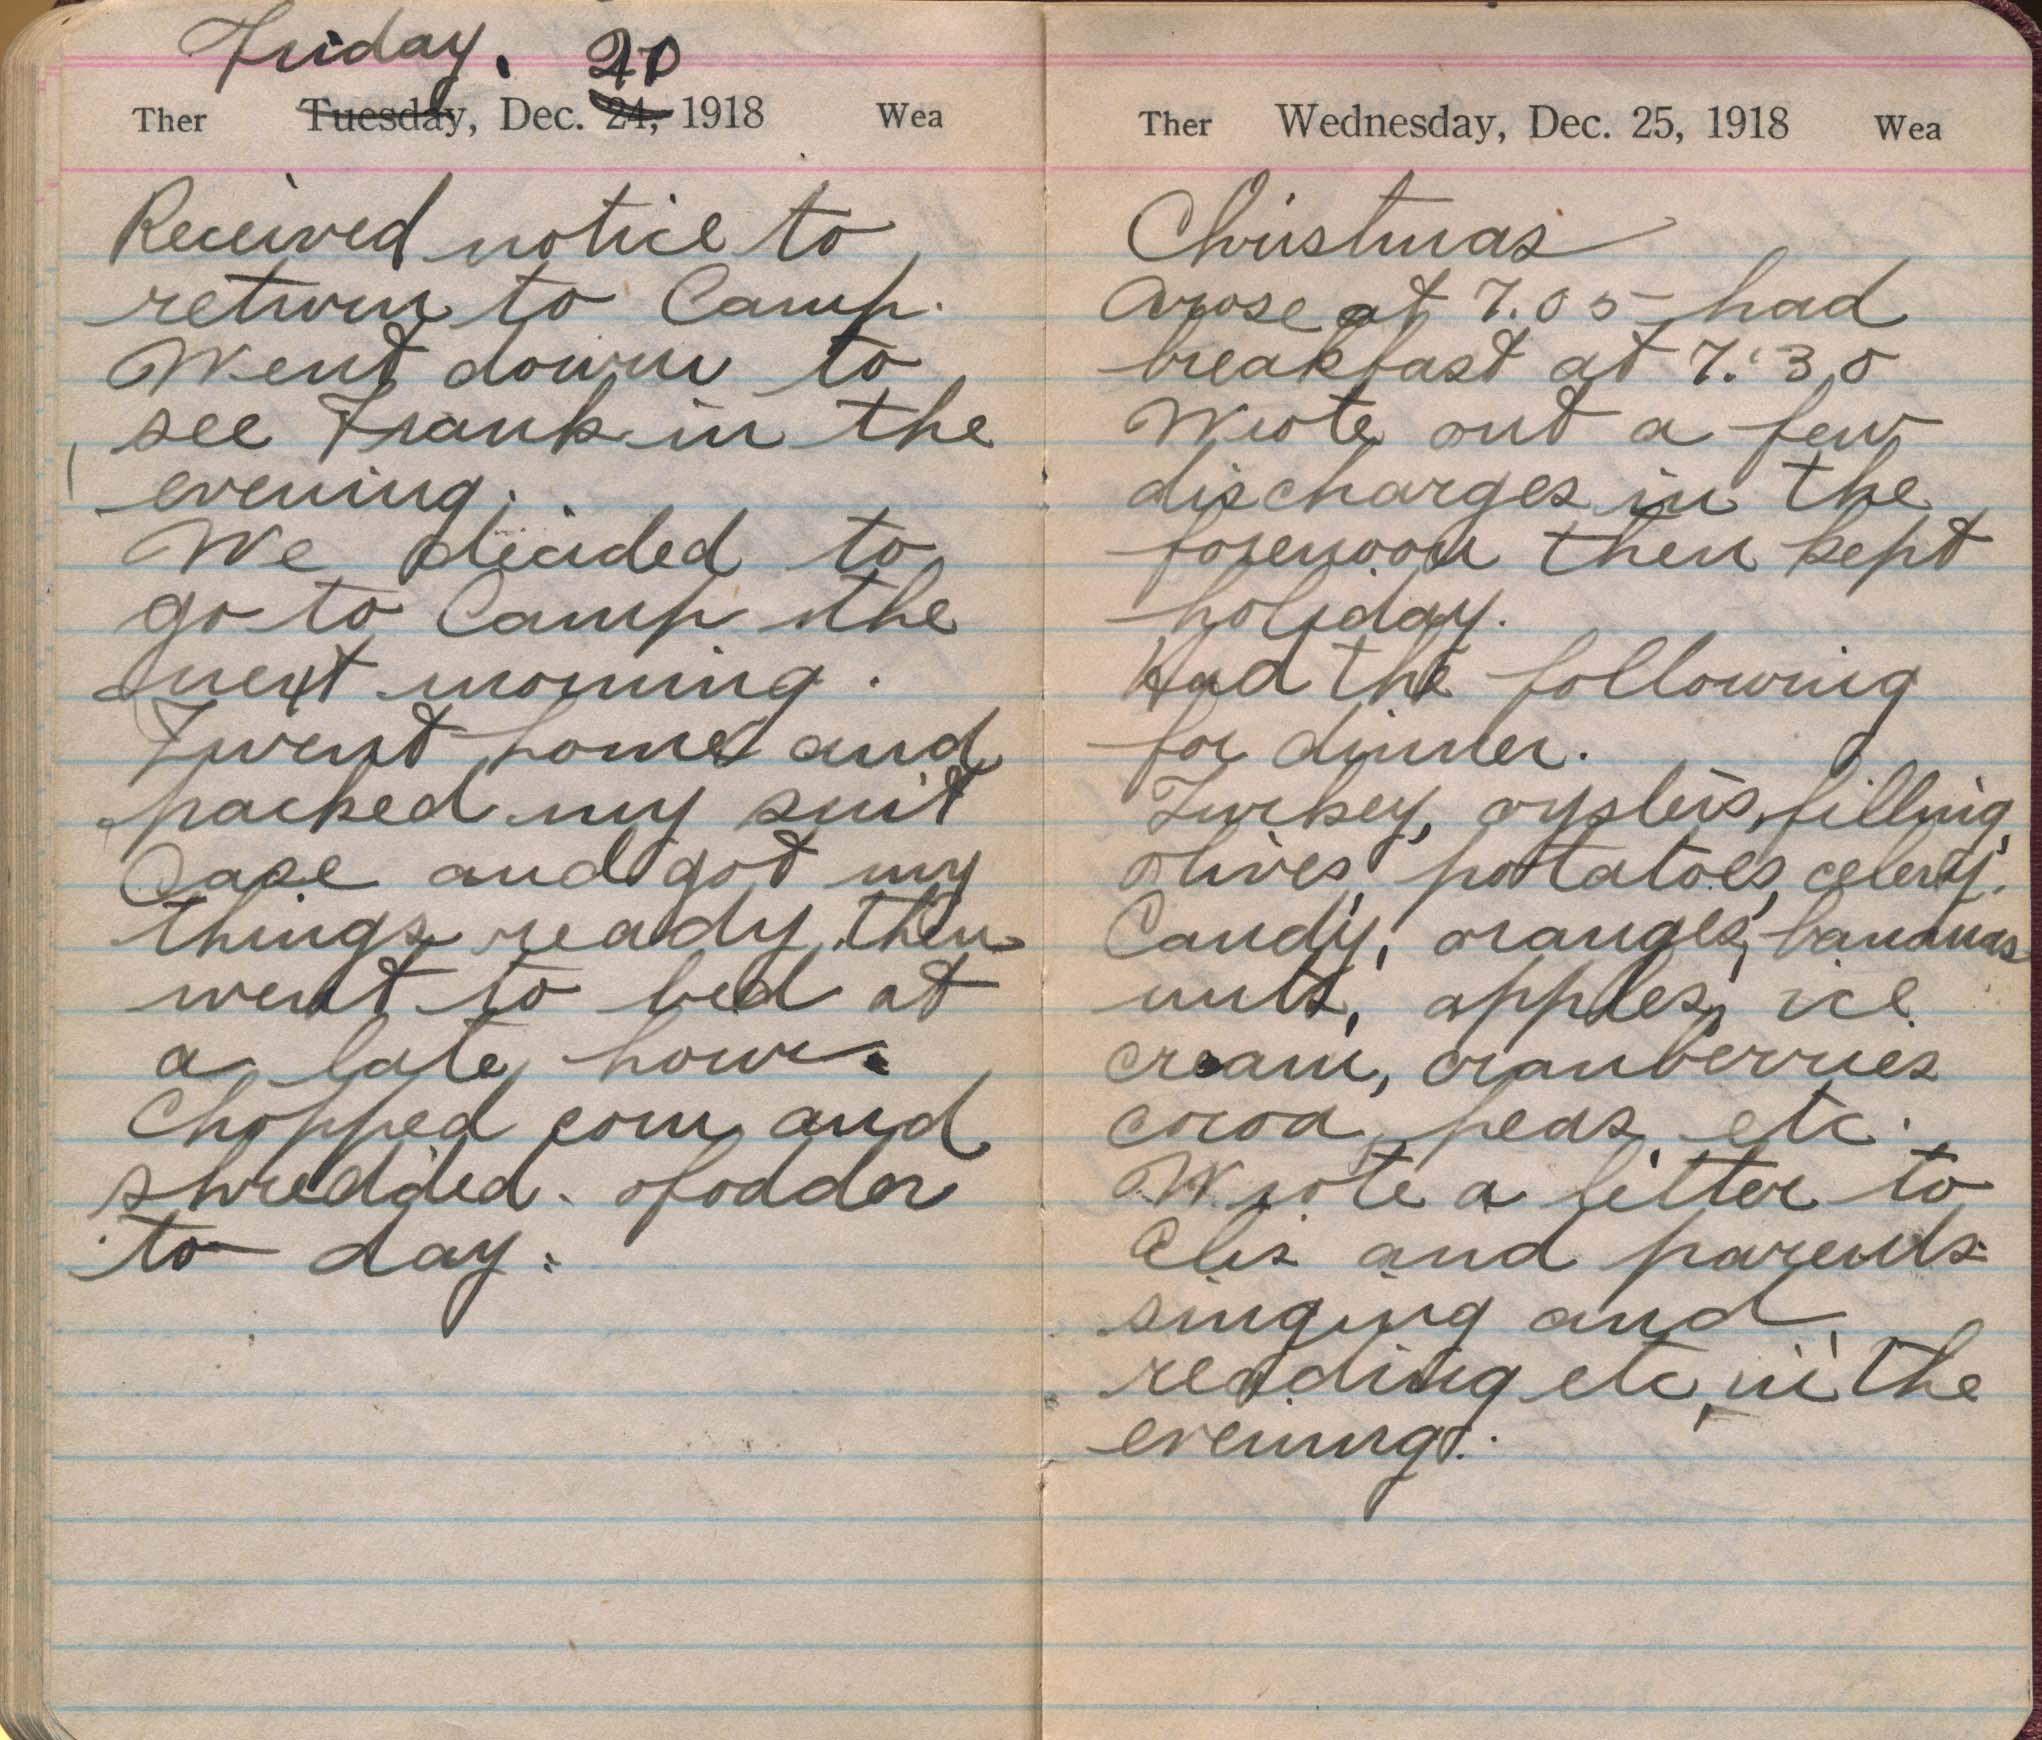 Friday. 20
Ther Tuesday, Dec. 24, 1918 Wea
Received notice to
return to Camp.
Went down to
see Frank in the
evening.
We decided to
go to Camp the
next morning.
I went home and
packed my suit
Case and got my
things ready then
went to bed at
a late hour.
Chopped corn and
shredded fodder
to day.
Ther Wednesday, Dec. 25, 1918 Wea
Christmas
Arose at 7.05 had
breakfast at 7:30
Wrote out a few
discharges in the
forenoon then kept
holiday.
Had the following
for dinner.
Turkey, oysters, filling,
olives, potatoes, celery,
Candy, oranges, bananas
nuts, apples, ice
cream, cranberries
cocoa, peas etc.
Wrote a letter to
Elis and parents
singing and
reading etc, in the
evening.